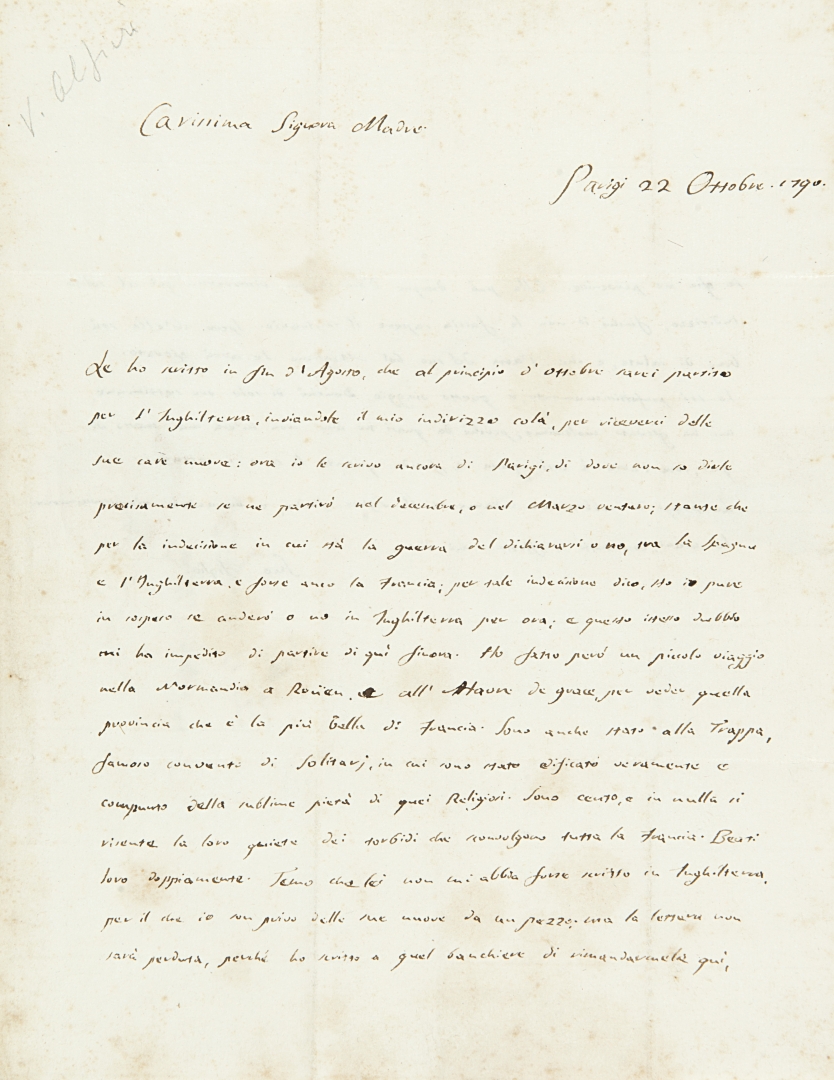 V. Alfieri
Carissima Signora Madre.
Parigi 22 Ottobre. 1790.
Le ho scritto in fin d'Agosto, che al principio d'Ottobre sarei partito
per l'Inghilterra, inviandole il mio indirizzo colà, per riceverci delle
sue care nuove: ora io le scrivo ancora di Parigi, di dove non so dirle
precisamente se ne partirò nel decembre, o nel Marzo venturo; stante che
per la indecisione in cui stà la guerra del dichiararsi o no, tra la Spagna
e l'Inghilterra, e forse anco la Francia; per tale indecisione dico, sto io pure
in sospeso se anderó o no in Inghilterra per ora; e questo istesso dubbio
mi ha impedito di partire di quì finora. Ho fatto peró un piccolo viaggio
nella Normandia a Roüen, e all'Havre de grace, per veder quella
provincia che è la più bella di Francia. Sono anche stato alla Trappa,
famoso convento di Solitarj, in cui sono stato edificato veramente e
compunto della sublime pietà di quei Religiosi. Sono cento, e in nulla si
risente la loro quiete dei torbidi che sconvolgono tutta la Francia. Beati
loro doppiamente. Temo che lei non mi abbia forse scritto in Inghilterra,
per il che io son privo delle sue nuove da un pezzo; ma la lettera non
sarà perduta, perchè ho scritto a quel banchiere di rimandarmela quì,